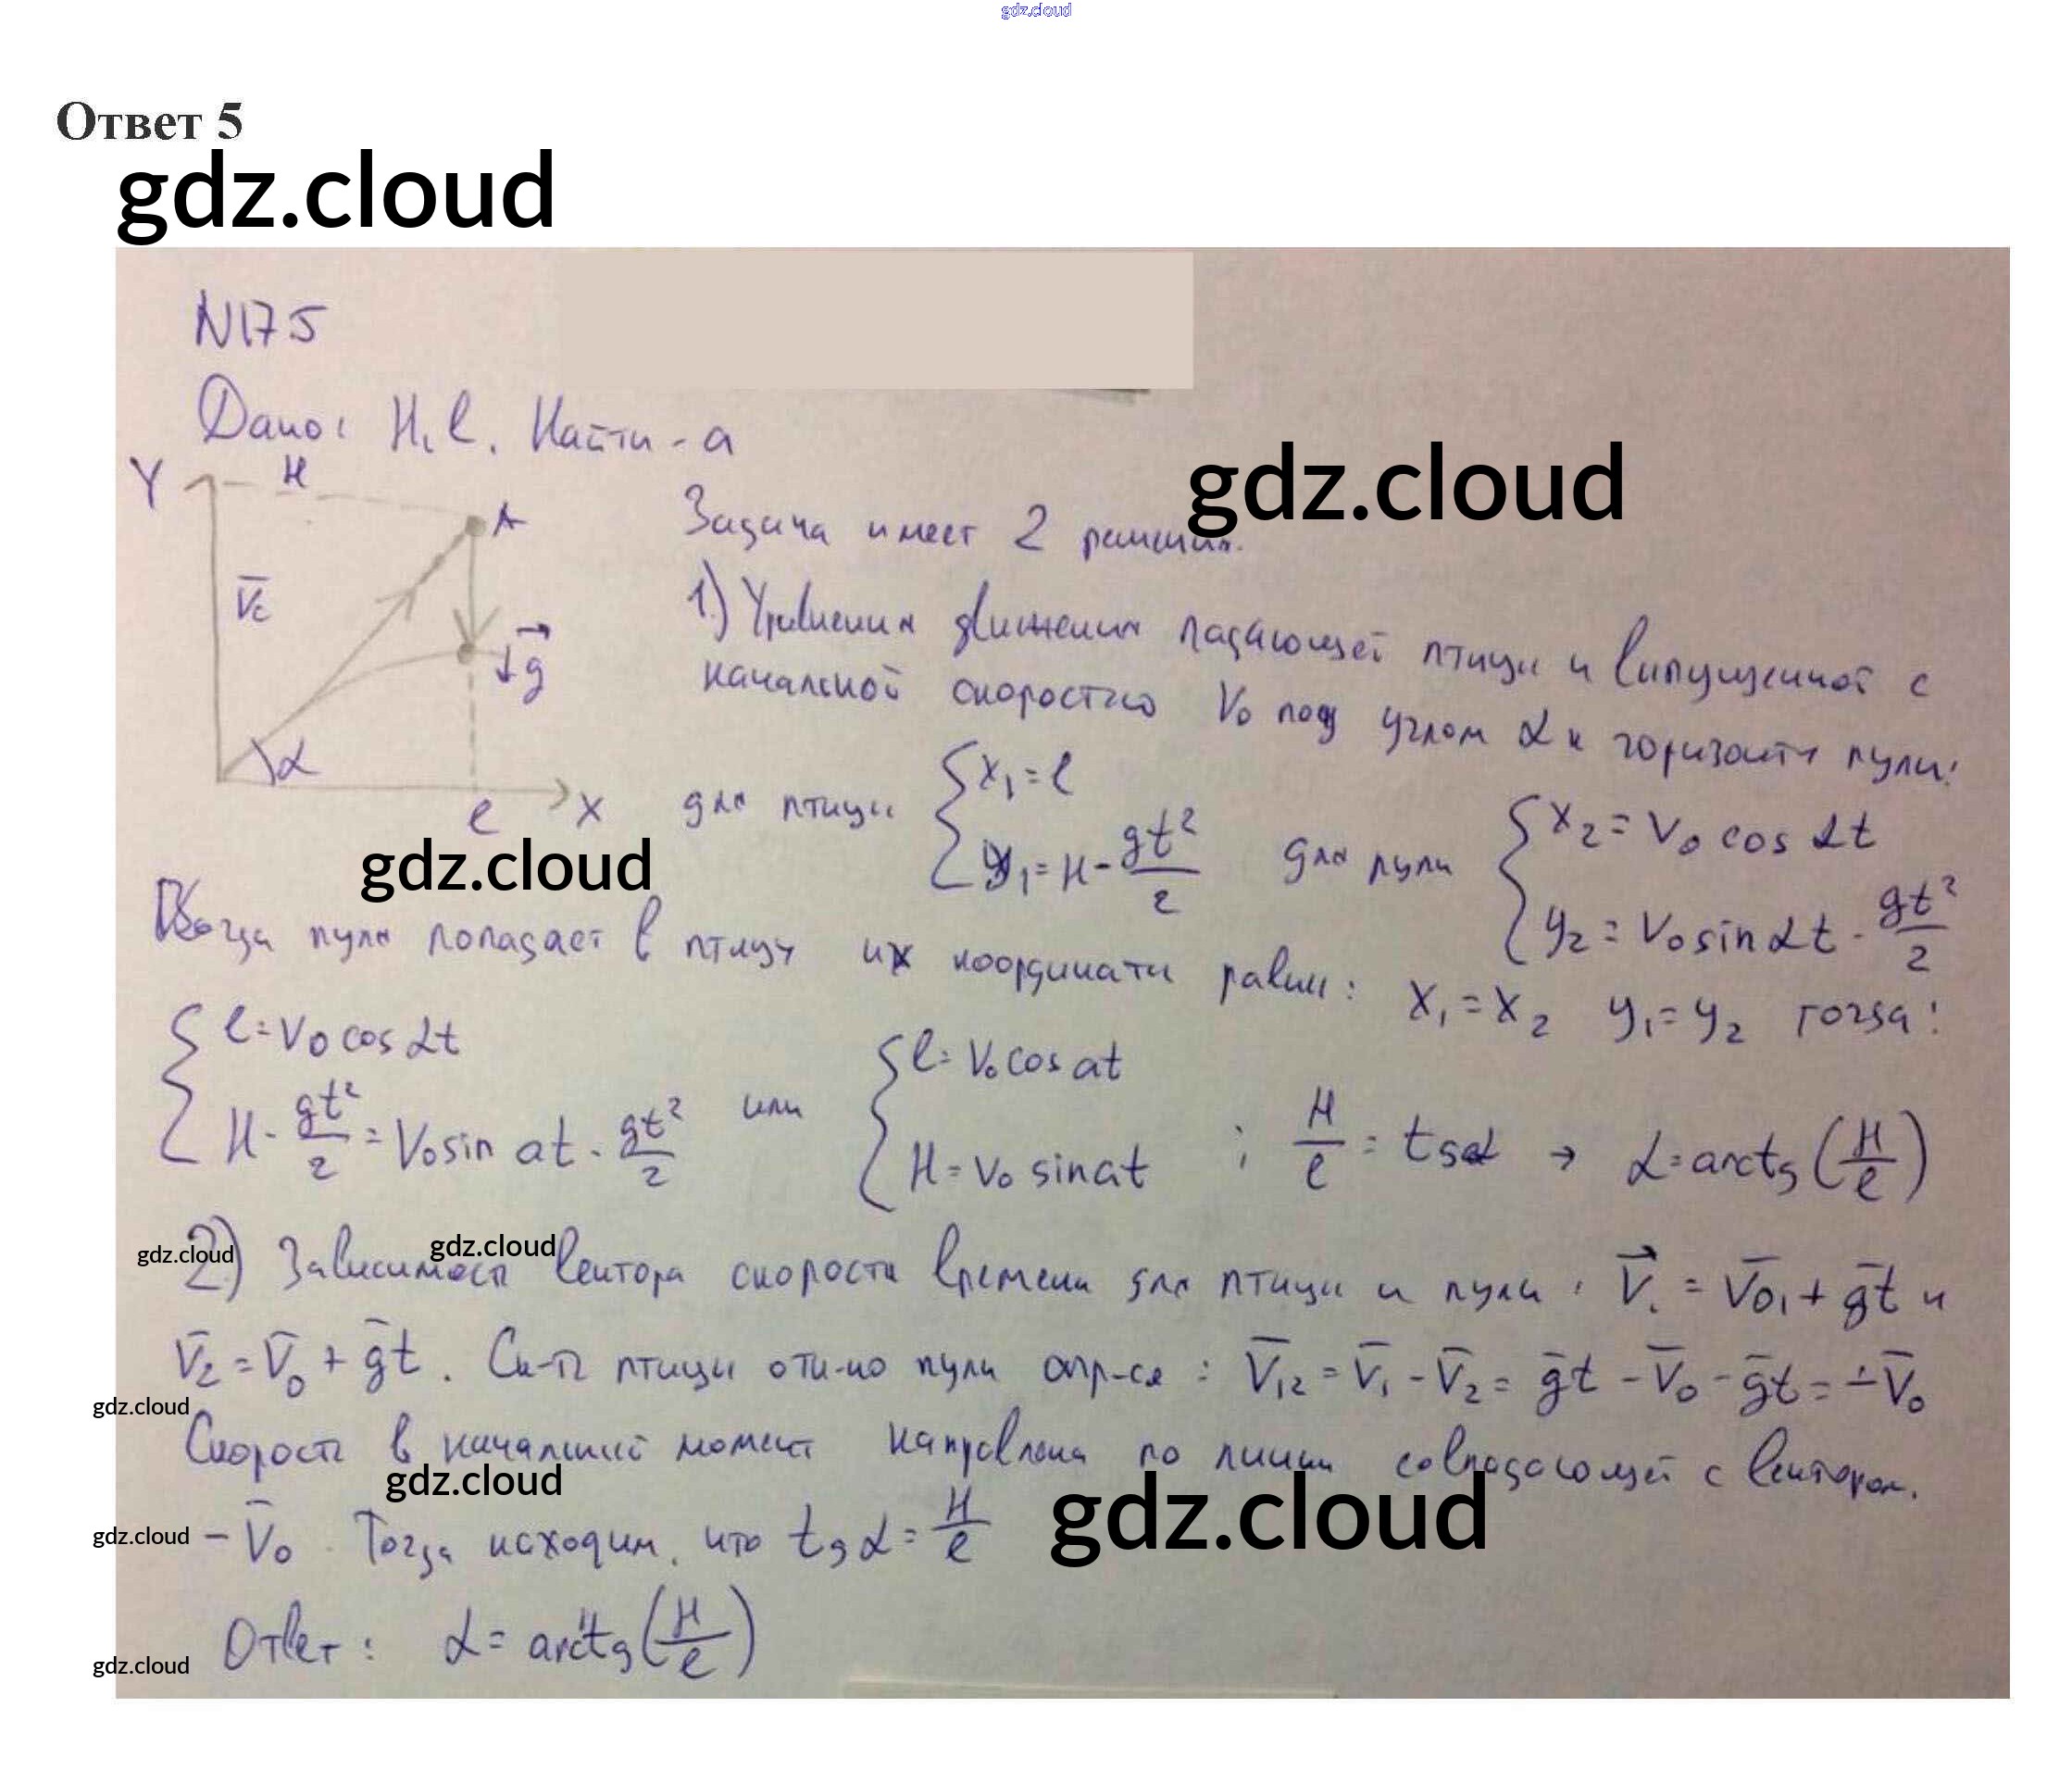 gdz.cloud
Ответ 5
gdz.cloud
N175
Дано: H, l. Найти - a
gdz.cloud
Y H A
V̄c
↓g⃗
α
l X
Задача имеет 2 решения.
1.) Уравнения движения падающей птицы и выпущенной с
начальной скоростью V₀ под углом α к горизонту пули:
для птицы { x₁ = l
y₁ = H - gt²/2
для пули { x₂ = V₀ cos αt
y₂ = V₀ sin αt - gt²/2
gdz.cloud
Когда пуля попадает в птицу их координаты равны: x₁ = x₂ y₁ = y₂ тогда:
{ l = V₀ cos αt
H - gt²/2 = V₀ sin at - gt²/2
или { l = V₀ cos at
H = V₀ sin at
; H/l = tgα → α = arctg (H/l)
gdz.cloud
gdz.cloud
2.) Зависимость вектора скорости времени для птицы и пули: V⃗₁ = V̄₀₁ + ḡt и
V̄₂ = V̄₀ + ḡt. Ск-ть птицы отн-но пули опр-ся: V̄₁₂ = V̄₁ - V̄₂ = ḡt - V̄₀ - ḡt = -V̄₀
gdz.cloud
Скорость в начальный момент направлена по линии совпадающей с вектором.
gdz.cloud
gdz.cloud
gdz.cloud
- V̄₀. Тогда находим, что tg α = H/l
Ответ: α = arctg (H/l)
gdz.cloud